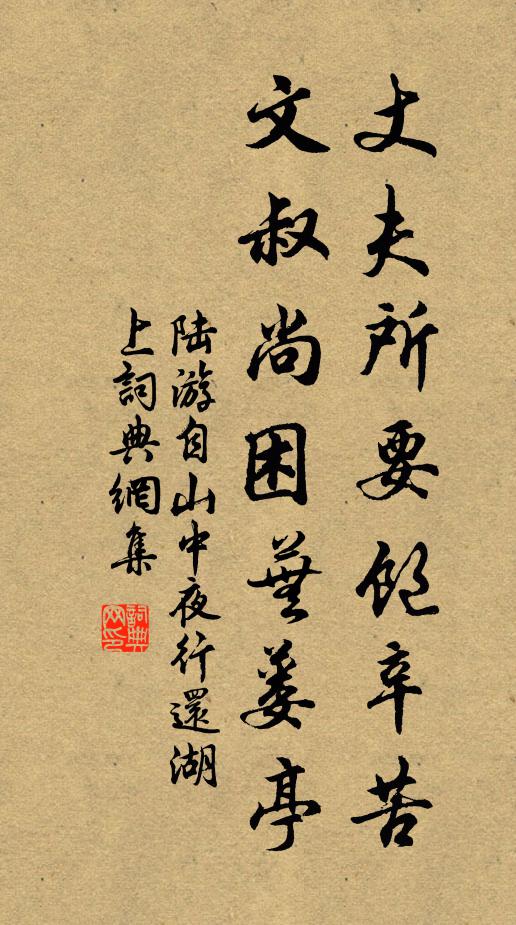 丈夫所要飽辛苦
文叔尚困蕪蔞亭
陆游自山中夜行還湖
上詞典網集
詞典
网印